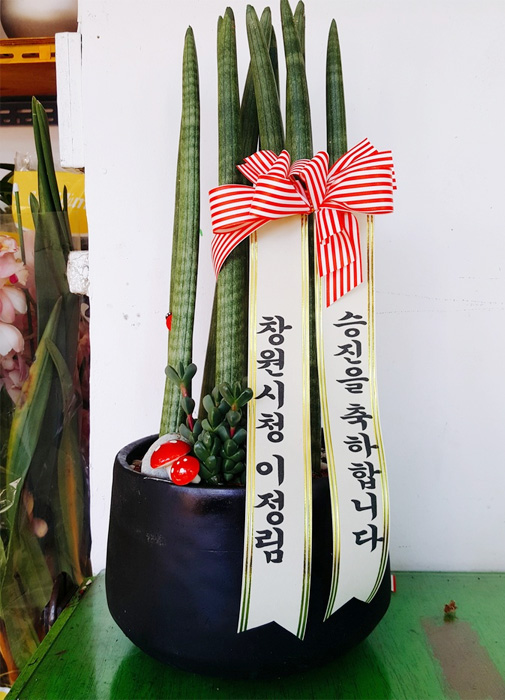 승진을 축하합니다
창원시청 이정림